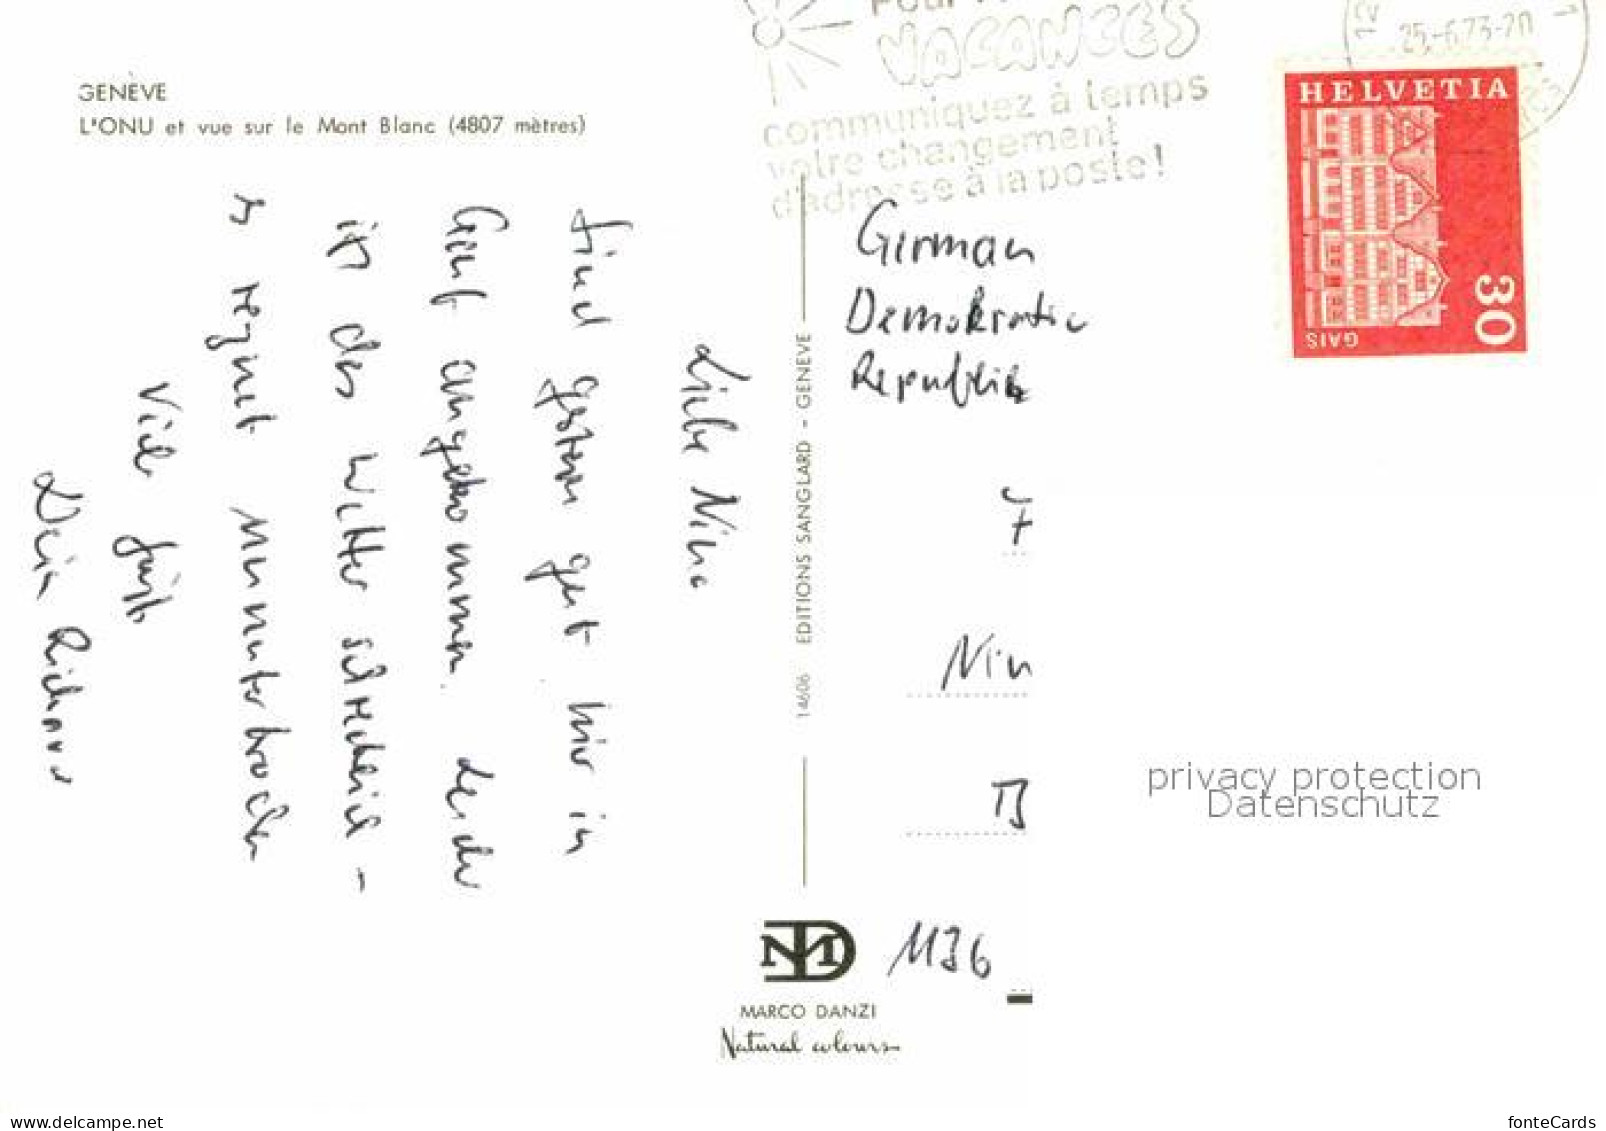 GENÈVE
L'ONU et vue sur le Mont Blanc (4807 mètres)
Liebe Nina
sind gestern gut hier in
Genf angekommen. Leider
ist das Wetter schrecklich -
es regnet ununterbrochen
Viele Grüße
Dein Richard
14606 EDITIONS SANGLARD - GENÈVE
VACANCES
communiquez à temps
votre changement
d'adresse à la poste!
25.-6.73-20
HELVETIA
30
GAIS
German
Demokratic
Republik
Nin
1136
MARCO DANZI
Natural colours
privacy protection
Datenschutz
www.delcampe.net
fonteCards